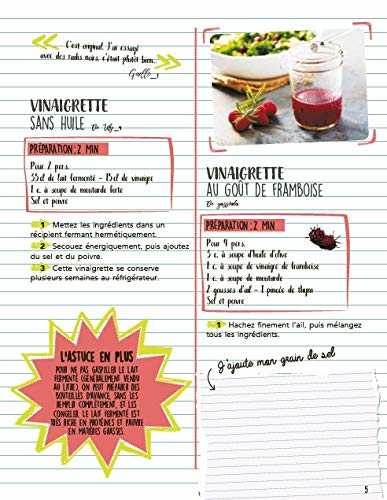 C'est original. J'ai essayé
avec des radis noirs, c'était plutôt bien...
Gaëlle_
VINAIGRETTE
SANS HUILE De
PRÉPARATION : 2 MIN
Pour 2 pers.
35 cl de lait fermenté - 15 cl de vinaigre
1 c. à soupe de moutarde forte
Sel et poivre
1 Mettez les ingrédients dans un
récipient fermant hermétiquement.
2 Secouez énergiquement, puis ajoutez
du sel et du poivre.
3 Cette vinaigrette se conserve
plusieurs semaines au réfrigérateur.
L'ASTUCE EN PLUS
POUR NE PAS GASPILLER LE LAIT
FERMENTÉ (GÉNÉRALEMENT VENDU
AU LITRE), ON PEUT PRÉPARER DES
BOUTEILLES D'AVANCE, SANS LES
REMPLIR COMPLÈTEMENT, ET LES
CONGELER. LE LAIT FERMENTÉ EST
TRÈS RICHE EN PROTÉINES ET PAUVRE
EN MATIÈRES GRASSES.
VINAIGRETTE
AU GOÛT DE FRAMBOISE
De
PRÉPARATION : 2 MIN
Pour 4 pers.
5 c. à soupe d'huile d'olive
1 c. à soupe de vinaigre de framboise
1 c. à soupe de moutarde
2 gousses d'ail - 1 pincée de thym
Sel et poivre
1 Hachez finement l'ail, puis mélangez
tous les ingrédients.
J'ajoute mon grain de sel
5